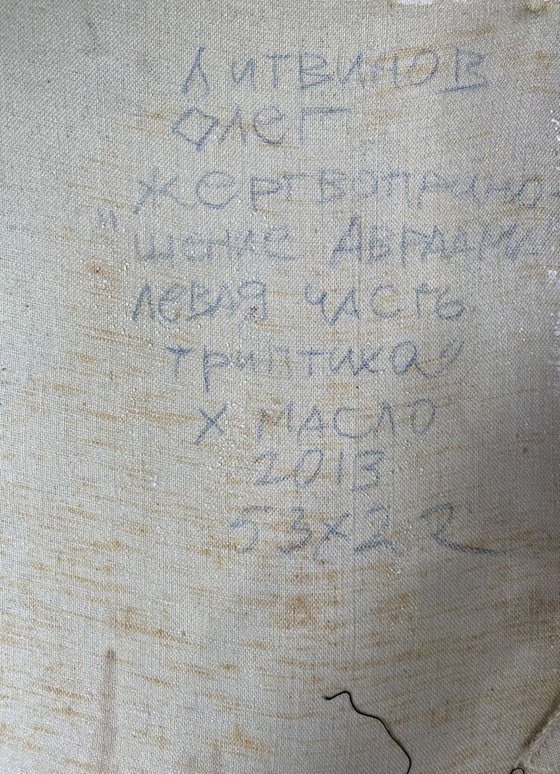 Литвинов
Олег
"Жертвоприно
шение Авраама
левая часть
триптиха"
х масло
2013
53х22